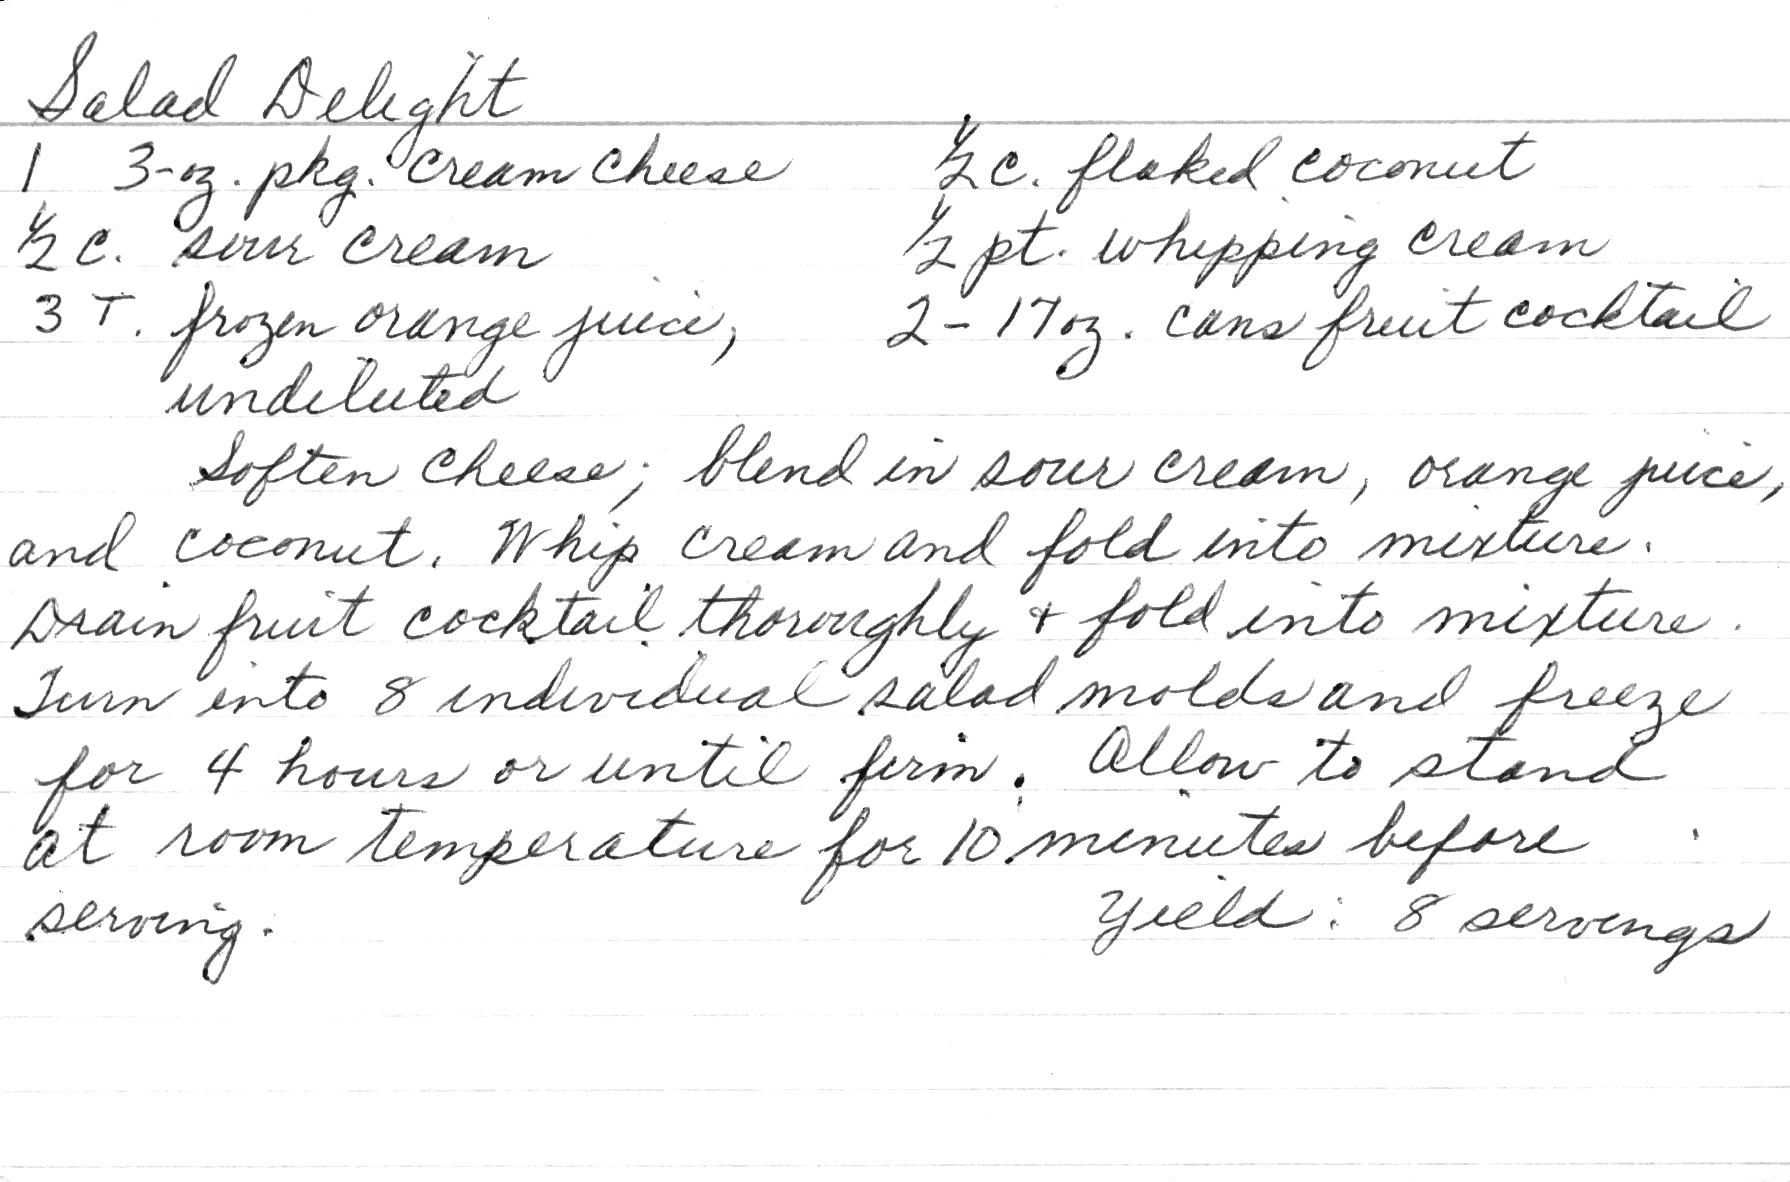 Salad Delight
1 3-oz. pkg. cream cheese
½ c. sour cream
3 T. frozen orange juice,
undiluted
½ c. flaked coconut
½ pt. whipping cream
2 - 17 oz. cans fruit cocktail
Soften cheese; blend in sour cream, orange juice,
and coconut. Whip cream and fold into mixture.
Drain fruit cocktail thoroughly + fold into mixture.
Turn into 8 individual salad molds and freeze
for 4 hours or until firm. Allow to stand
at room temperature for 10 minutes before
serving.
Yield: 8 servings